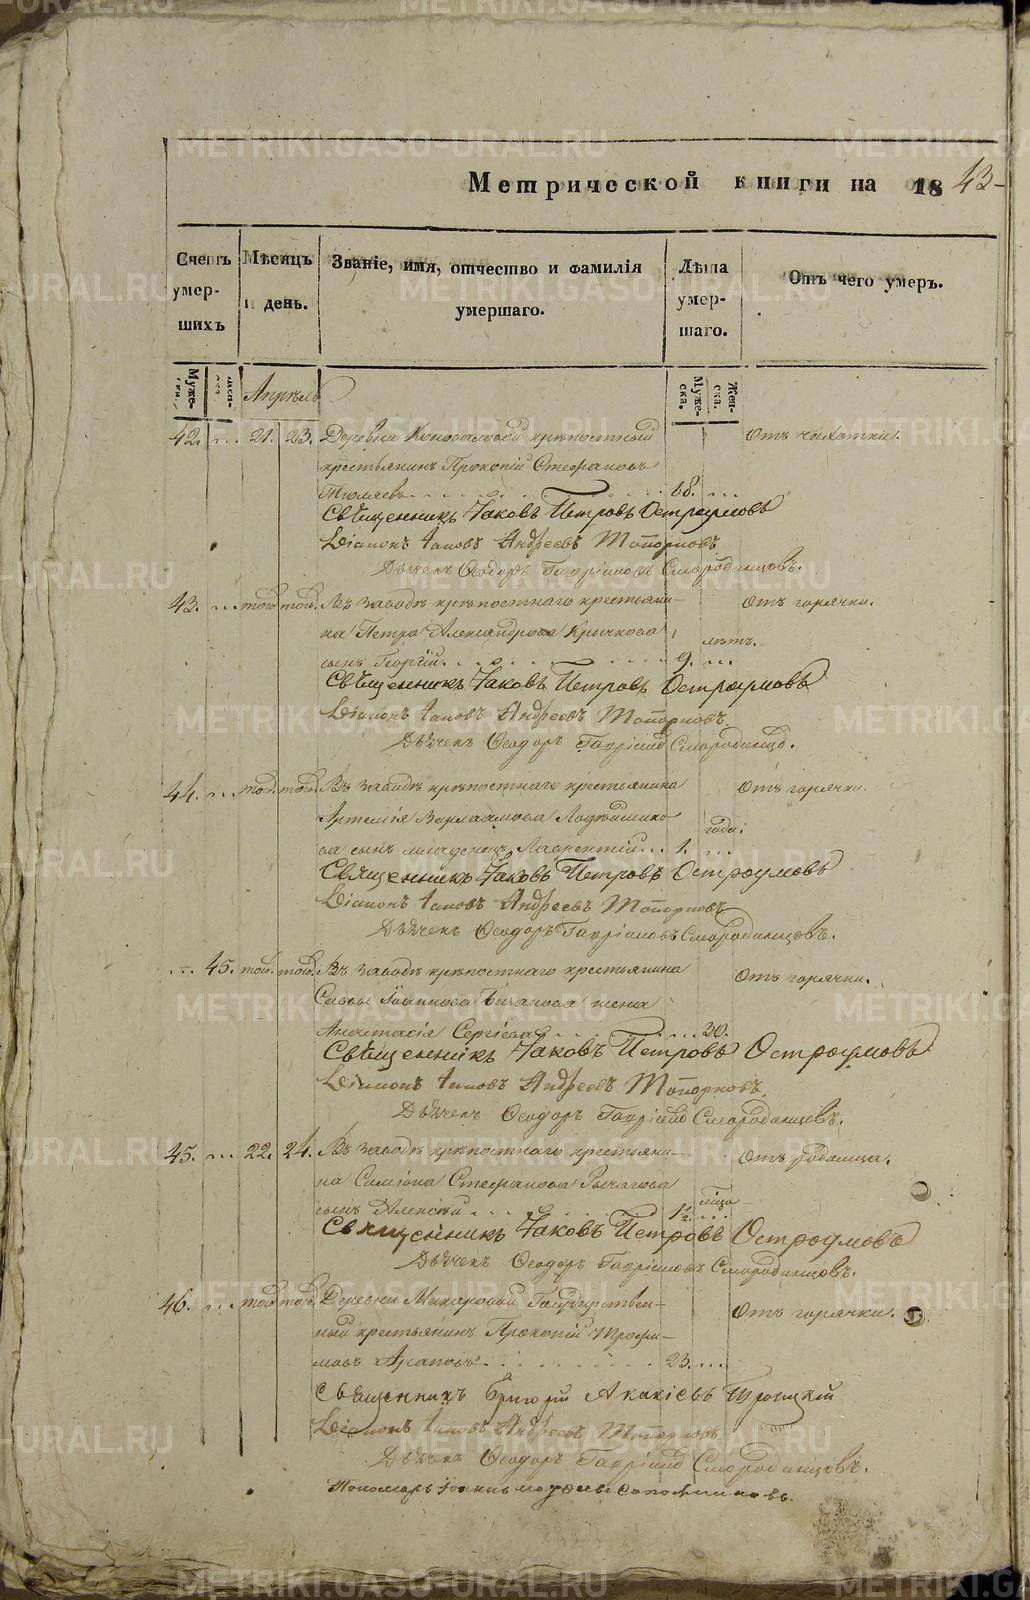 Метрической книги на 1843
Счетъ умершихъ
Мѣсяцъ и день.
Званіе, имя, отчество и фамилія умершаго.
Лѣта умершаго.
Отъ чего умеръ.
Муже-
Жен-
Апрѣль
Муже-ска.
Жен-ска.
42. ... 21. 23. Деревни крѣпостный Отъ чахотки.
крестьянинъ Прокопій Стефановъ
68. ...
Священникъ Іаковъ Петровъ Остроумовъ
Діаконъ Іаковъ Андреевъ Топорковъ
Дьячекъ Ѳеодоръ Гавріиловъ Смородинцовъ.
43. ... того. того. Въ заводѣ крѣпостнаго крестьяни- Отъ горячки.
на Петра Александрова Кричкова лѣтъ.
сынъ Георгій 9. ...
Священникъ Іаковъ Петровъ Остроумовъ
Діаконъ Іаковъ Андреевъ Топорковъ.
Дьячекъ Ѳеодоръ Гавріиловъ Смородинцовъ.
44. ... того. того. Въ заводѣ крѣпостнаго крестьянина Отъ горячки.
Артемія Варлаамова года.
ва сынъ младенецъ Лаврентій... 1. ...
Священникъ Іаковъ Петровъ Остроумовъ
Діаконъ Іаковъ Андреевъ Топорковъ
Дьячекъ Ѳеодоръ Гавріиловъ Смородинцовъ.
... 45. того. того. Въ заводѣ крѣпостнаго крестьянина Отъ горячки.
Саввы жена
Анастасія Сергіева ... 30.
Священникъ Іаковъ Петровъ Остроумовъ
Діаконъ Іаковъ Андреевъ Топорковъ.
Дьячекъ Ѳеодоръ Гавріиловъ Смородинцовъ.
45. ... 22. 24. Въ заводѣ крѣпостнаго крестьяни- Отъ родимца.
на Симіона Стефанова Рычагова
сынъ Алексѣй 1½ ...
Священникъ Іаковъ Петровъ Остроумовъ
Дьячекъ Ѳеодоръ Гавріиловъ Смородинцовъ.
46. ... того того. Деревни Макаровой Государствен- Отъ горячки.
ный крестьянинъ Прокопій Трофи-
мовъ 23. ...
Священникъ Григорій Акакіевъ Троицкій
Діаконъ Іаковъ Андреевъ Топорковъ.
Дьячекъ Ѳеодоръ Гавріиловъ Смородинцовъ.
Пономарь Іоаннъ Сапожниковъ.
METRIKI.GASO-URAL.RU